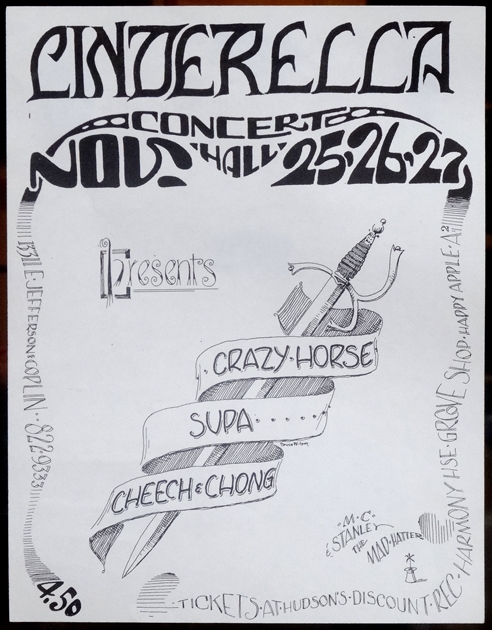 CINDERELLA
CONCERT
HALL
NOV. 25·26·27
Presents
CRAZY·HORSE
SUPA·······
CHEECH & CHONG
13311·E·JEFFERSON&COPLIN··8229333
4.50
·M·C·
& STANLEY
THE
MAD·HATTER
TICKETS·AT·HUDSON'S·DISCOUNT·REC·HARMONY HSE·GROOVE SHOP·HAPPY APPLE·A²